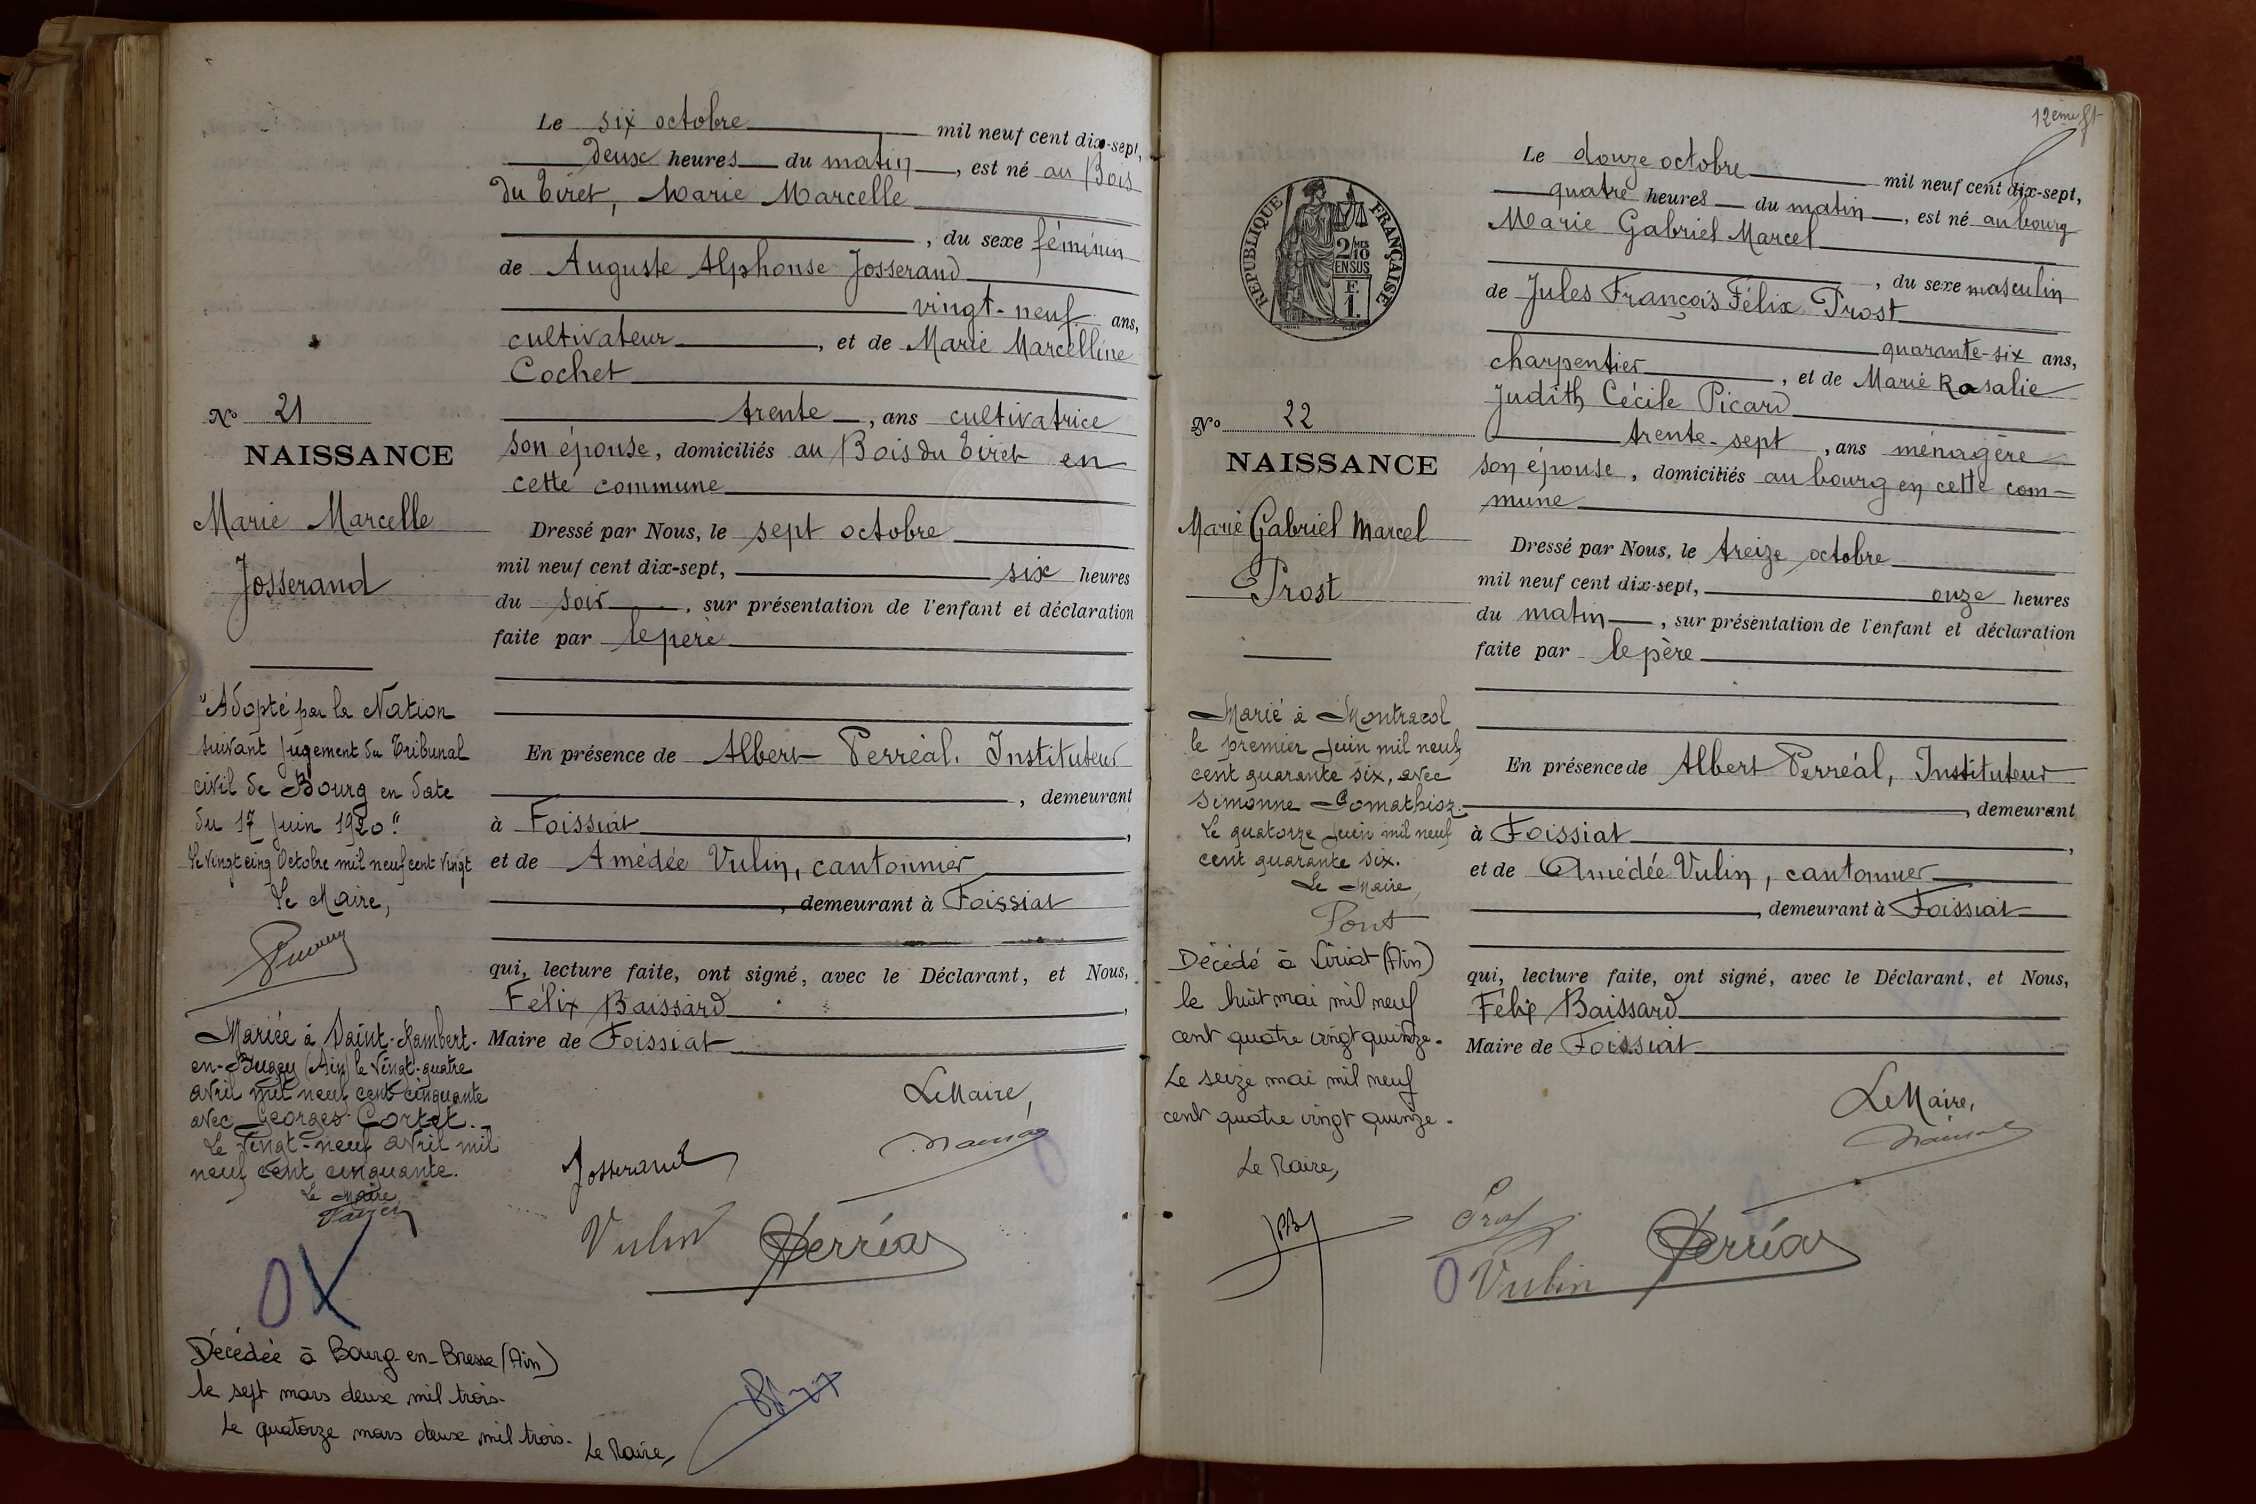 Le six octobre mil neuf cent dix-sept,
deux heures du matin, est né au Bois
du Tiret, Marie Marcelle
, du sexe féminin
de Auguste Alphonse Josserand
vingt-neuf ans,
cultivateur, et de Marie Marcelline
Cochet
trente, ans cultivatrice
son épouse, domiciliés au Bois du Tiret en
cette commune
Dressé par Nous, le sept octobre
mil neuf cent dix-sept, six heures
du soir, sur présentation de l'enfant et déclaration
faite par le père
En présence de Albert Perréal, Instituteur
, demeurant
à Foissiat,
et de Amédée Vulin, cantonnier
, demeurant à Foissiat
qui, lecture faite, ont signé, avec le Déclarant, et Nous,
Félix Baissard,
Maire de Foissiat
Le Maire,
Josserand
Vulin Perréal
No 21
NAISSANCE
Marie Marcelle
Josserand
"Adopté par la Nation
suivant jugement du Tribunal
civil de Bourg en date
du 17 juin 1920."
Le vingt cinq Octobre mil neuf cent vingt
Le Maire,
Mariée à Saint-Rambert-
en-Bugey (Ain) le vingt-quatre
avril mil neuf cent cinquante
avec Georges Cortet.
Le vingt-neuf avril mil
neuf cent cinquante.
Le Maire
Décédée à Bourg-en-Bresse (Ain)
le sept mars deux mil trois.
Le quatorze mars deux mil trois.
Le Maire,
12ème ft
Le douze octobre mil neuf cent dix-sept,
quatre heures du matin, est né au bourg
Marie Gabriel Marcel
, du sexe masculin
de Jules François Félix Prost
quarante-six ans,
charpentier, et de Marie Rosalie
Judith Cécile Picard
trente-sept, ans ménagère
son épouse, domiciliés au bourg en cette com=
mune
Dressé par Nous, le treize octobre
mil neuf cent dix-sept, onze heures
du matin, sur présentation de l'enfant et déclaration
faite par le père
En présence de Albert Perréal, Instituteur
, demeurant
à Foissiat,
et de Amédée Vulin, cantonnier
, demeurant à Foissiat
qui, lecture faite, ont signé, avec le Déclarant, et Nous,
Félix Baissard
Maire de Foissiat
Le Maire,
Prost
Vulin Perréal
RÉPUBLIQUE FRANÇAISE
2/10 MES
EN SUS
F.
1.
No 22
NAISSANCE
Marie Gabriel Marcel
Prost
Marié à Montracol
le premier juin mil neuf
cent quarante six, avec
Simonne Comathioz.
Le quatorze juin mil neuf
cent quarante six.
Le Maire,
Pont
Décédé à Viriat (Ain)
le huit mai mil neuf
cent quatre vingt quinze.
Le seize mai mil neuf
cent quatre vingt quinze.
Le Maire,